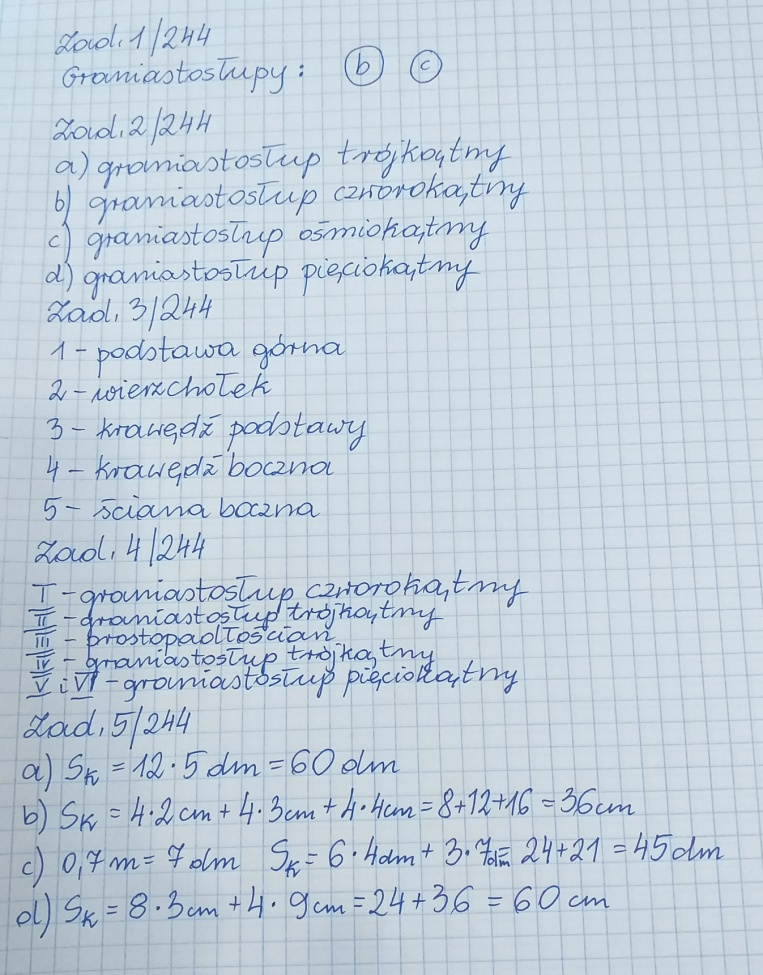 Zad. 1/244
Graniastosłupy: b c
Zad. 2/244
a) graniastosłup trójkątny
b) graniastosłup czworokątny
c) graniastosłup ośmiokątny
d) graniastosłup pięciokątny
Zad. 3/244
1 - podstawa górna
2 - wierzchołek
3 - krawędź podstawy
4 - krawędź boczna
5 - ściana boczna
Zad. 4/244
I - graniastosłup czworokątny
II - graniastosłup trójkątny
III - prostopadłościan
IV - graniastosłup trójkątny
V i VI - graniastosłup pięciokątny
Zad. 5/244
a) Sₖ = 12·5 dm = 60 dm
b) Sₖ = 4·2cm + 4·3cm + 4·4cm = 8+12+16 = 36cm
c) 0,7m = 7 dm Sₖ = 6·4dm + 3·7dm = 24+21 = 45dm
d) Sₖ = 8·3cm + 4·9cm = 24+36 = 60 cm